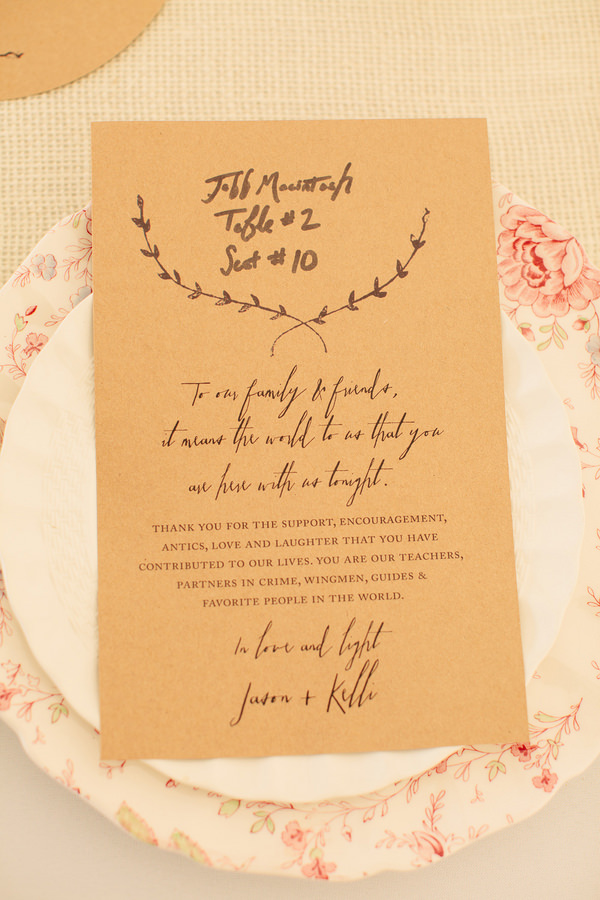 Jabb Macintosh
Table #2
Seat #10
To our family & friends,
it means the world to us that you
are here with us tonight.
THANK YOU FOR THE SUPPORT, ENCOURAGEMENT,
ANTICS, LOVE AND LAUGHTER THAT YOU HAVE
CONTRIBUTED TO OUR LIVES. YOU ARE OUR TEACHERS,
PARTNERS IN CRIME, WINGMEN, GUIDES &
FAVORITE PEOPLE IN THE WORLD.
In love and light
Jason + Kelli